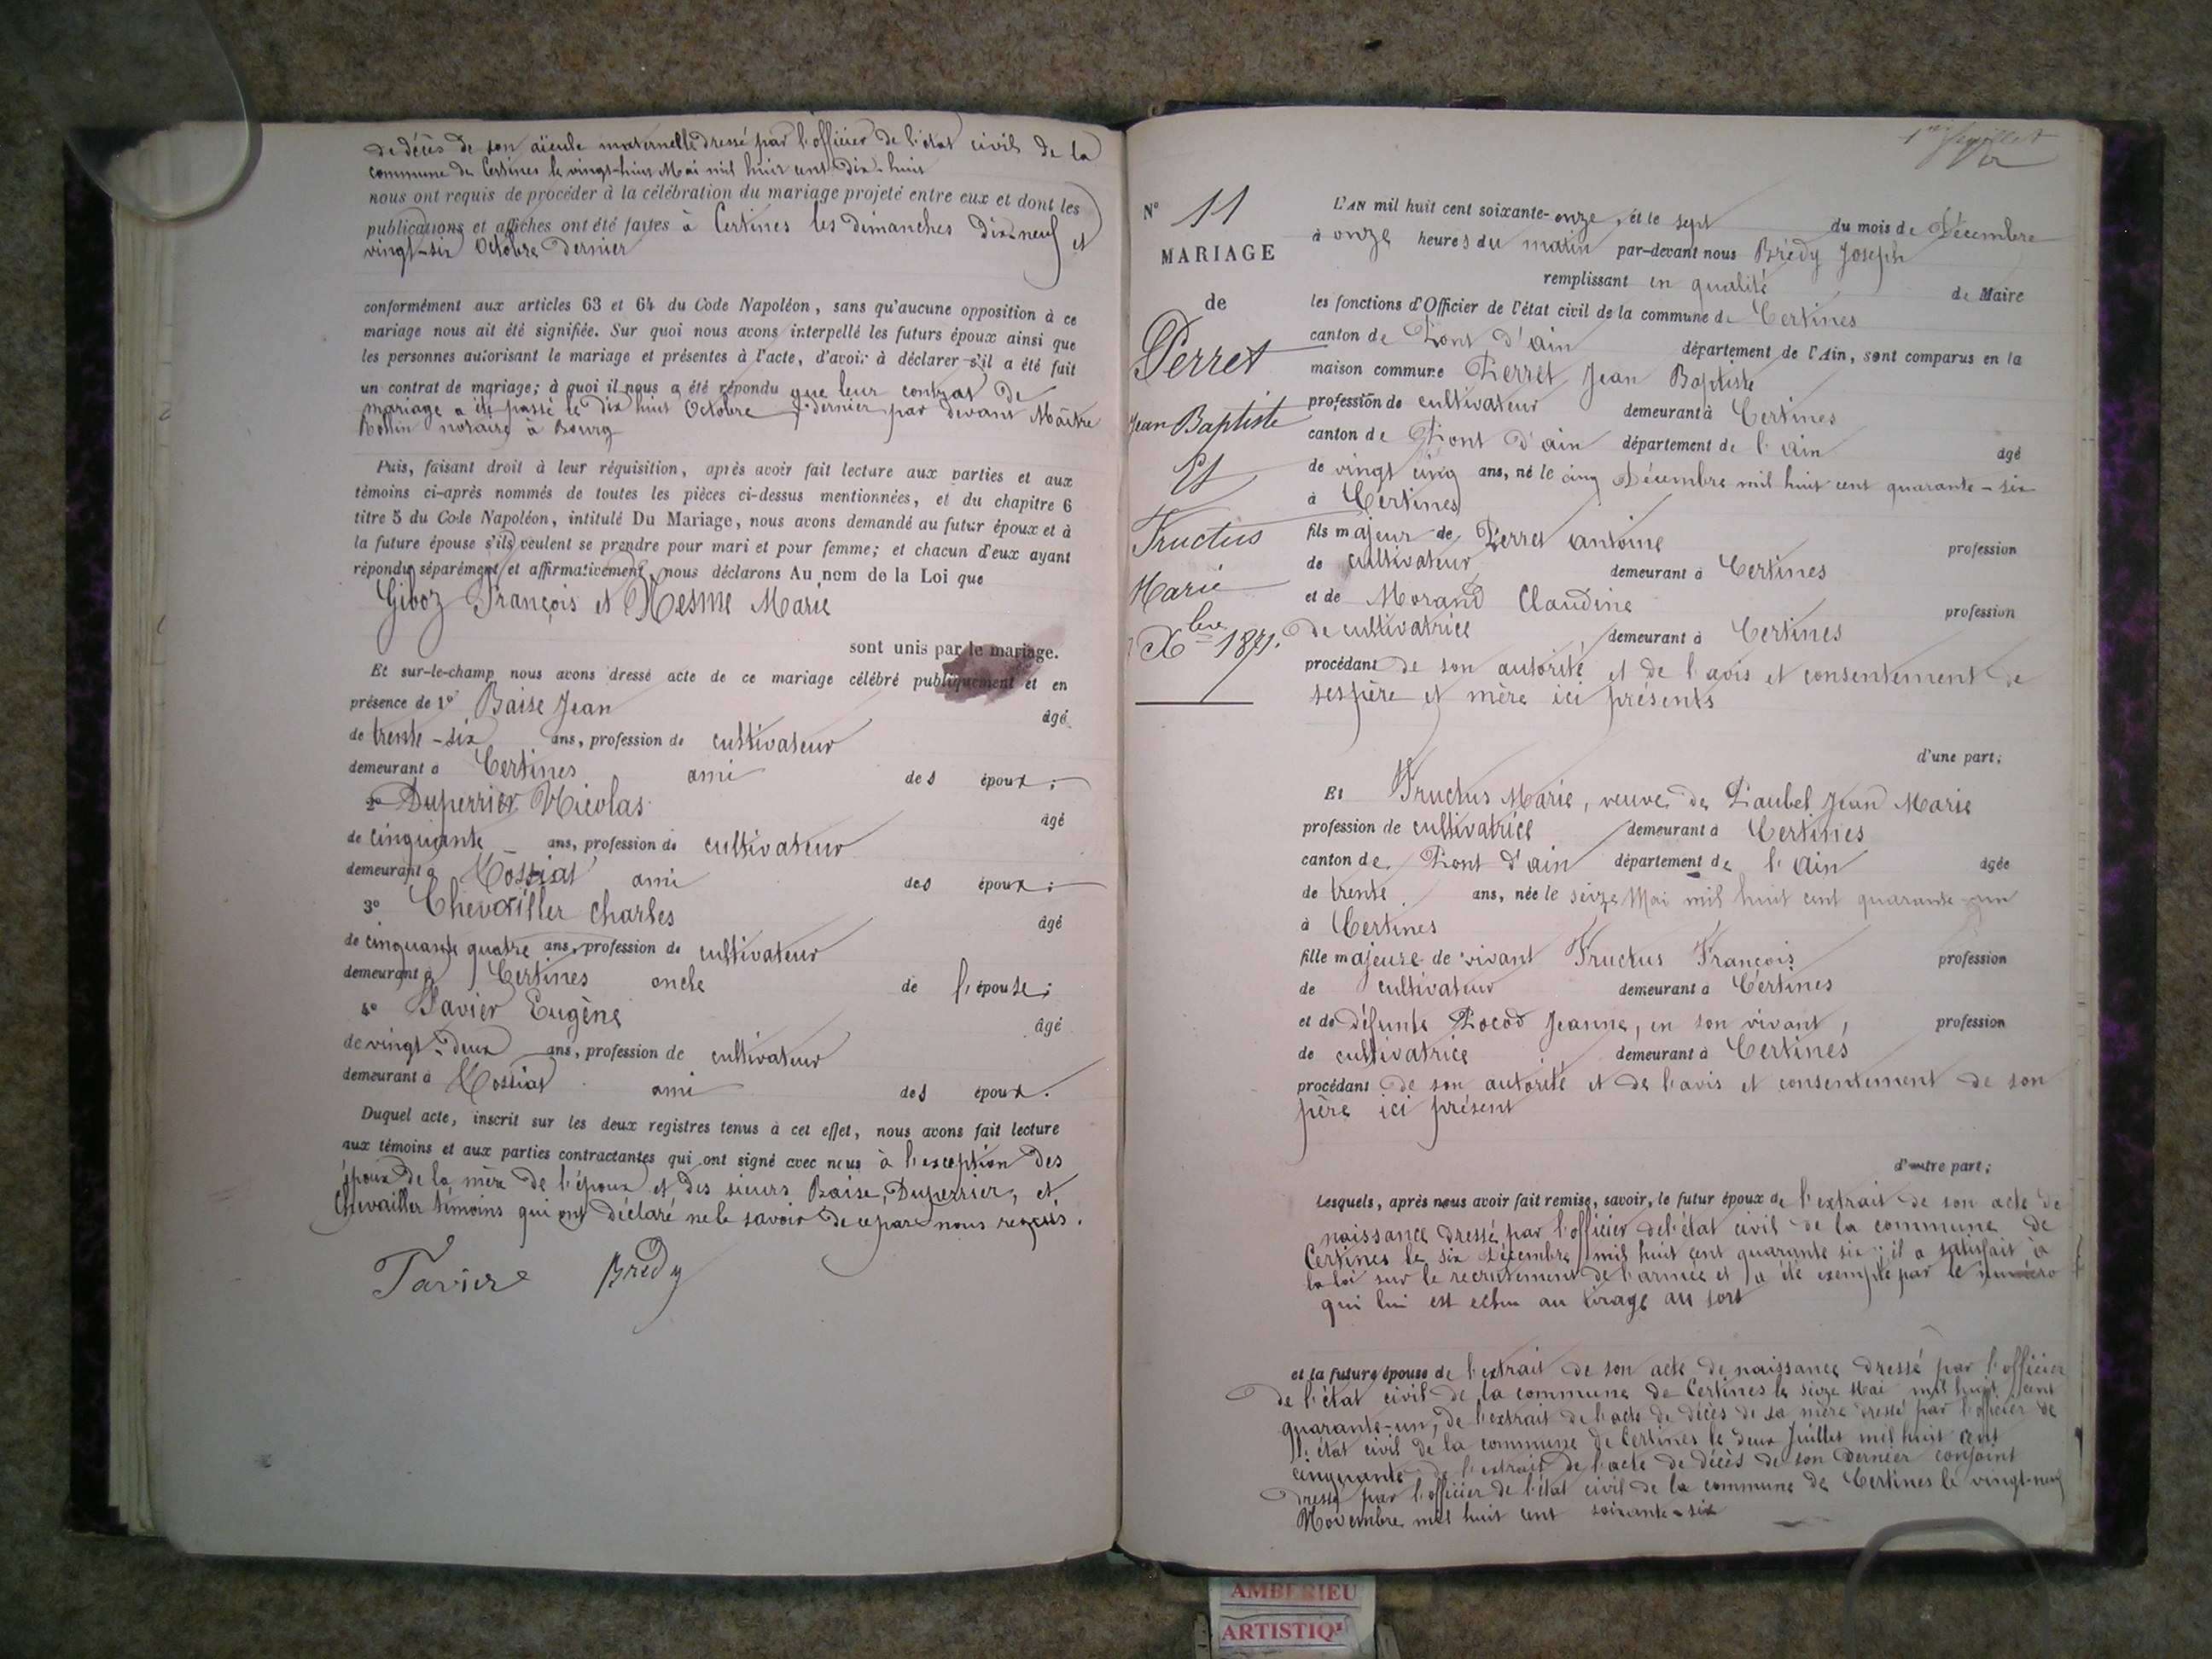 de décès de son aïeule maternelle dressé par l'officier de l'état civil de la
commune de Certines le vingt-huit Mai mil huit cent dix-huit
nous ont requis de procéder à la célébration du mariage projeté entre eux et dont les
publications et affiches ont été faites à Certines les dimanches dix-neuf et
vingt-six Octobre dernier
conformément aux articles 63 et 64 du Code Napoléon, sans qu'aucune opposition à ce
mariage nous ait été signifiée. Sur quoi nous avons interpellé les futurs époux ainsi que
les personnes autorisant le mariage et présentes à l'acte, d'avoir à déclarer s'il a été fait
un contrat de mariage; à quoi il nous a été répondu que leur contrat de
mariage a été passé le dix huit Octobre dernier par devant Maître
notaire à Bourg
Puis, faisant droit à leur réquisition, après avoir fait lecture aux parties et aux
témoins ci-après nommés de toutes les pièces ci-dessus mentionnées, et du chapitre 6
titre 5 du Code Napoléon, intitulé Du Mariage, nous avons demandé au futur époux et à
la future épouse s'ils veulent se prendre pour mari et pour femme; et chacun d'eux ayant
répondu séparément et affirmativement, nous déclarons Au nom de la Loi que
Giboz François et Mesme Marie
sont unis par le mariage.
Et sur-le-champ nous avons dressé acte de ce mariage célébré publiquement et en
présence de 1º Baise Jean âgé
de trente-six ans, profession de cultivateur
demeurant à Certines ami des époux;
2º Duperrier Nicolas âgé
de cinquante ans, profession de cultivateur
demeurant à Tossiat ami des époux;
3º Chevailler Charles âgé
de cinquante quatre ans, profession de cultivateur
demeurant à Certines oncle de l'épouse;
4º Tavier Eugène âgé
de vingt-deux ans, profession de cultivateur
demeurant à Tossiat ami des époux.
Duquel acte, inscrit sur les deux registres tenus à cet effet, nous avons fait lecture
aux témoins et aux parties contractantes qui ont signé avec nous à l'exception des
époux de la mère de l'époux et des sieurs Baise, Duperrier, et
Chevailler témoins qui ont déclaré ne le savoir de ce par nous requis.
Tavier Brédy
Nº 11
MARIAGE
de
Perret
Jean Baptiste
Et
Fructus
Marie
7 Xbre 1871.
L'AN mil huit cent soixante-onze, et le sept du mois de Décembre
à onze heures du matin par-devant nous Brédy Joseph
remplissant en qualité de Maire
les fonctions d'Officier de l'état civil de la commune de Certines
canton de Pont d'ain département de l'Ain, sont comparus en la
maison commune Perret Jean Baptiste
profession de cultivateur demeurant à Certines
canton de Pont d'ain département de l'ain âgé
de vingt cinq ans, né le cinq Décembre mil huit cent quarante-six
à Certines
fils majeur de Perret antoine profession
de cultivateur demeurant à Certines
et de Morand Claudine profession
de cultivatrice demeurant à Certines
procédant de son autorité et de l'avis et consentement de
ses père et mère ici présents
d'une part;
Et Fructus Marie, veuve de Paubel Jean Marie
profession de cultivatrice demeurant à Certines
canton de Pont d'ain département de l'ain âgée
de trente ans, née le seize Mai mil huit cent quarante-un
à Certines
fille majeure de vivant Fructus François profession
de cultivateur demeurant à Certines
et de défunte Pocod Jeanne, en son vivant, profession
de cultivatrice demeurant à Certines
procédant de son autorité et de l'avis et consentement de son
père ici présent
d'autre part;
Lesquels, après nous avoir fait remise, savoir, le futur époux de l'extrait de son acte de
naissance dressé par l'officier de l'état civil de la commune de
Certines le six Décembre mil huit cent quarante six; il a satisfait à
la loi sur le recrutement de l'armée et a été exempté par le numéro
qui lui est echu au tirage au sort
et la future épouse de l'extrait de son acte de naissance dressé par l'officier
de l'état civil de la commune de Certines le seize Mai mil huit cent
quarante-un, de l'extrait de l'acte de décès de sa mère dressé par l'officier de
l'état civil de la commune de Certines le deux Juillet mil huit cent
cinquante de l'extrait de l'acte de décès de son dernier conjoint
dressé par l'officier de l'état civil de la commune de Certines le vingt-neuf
Novembre mil huit cent soixante-six
AMBERIEU
ARTISTIQ